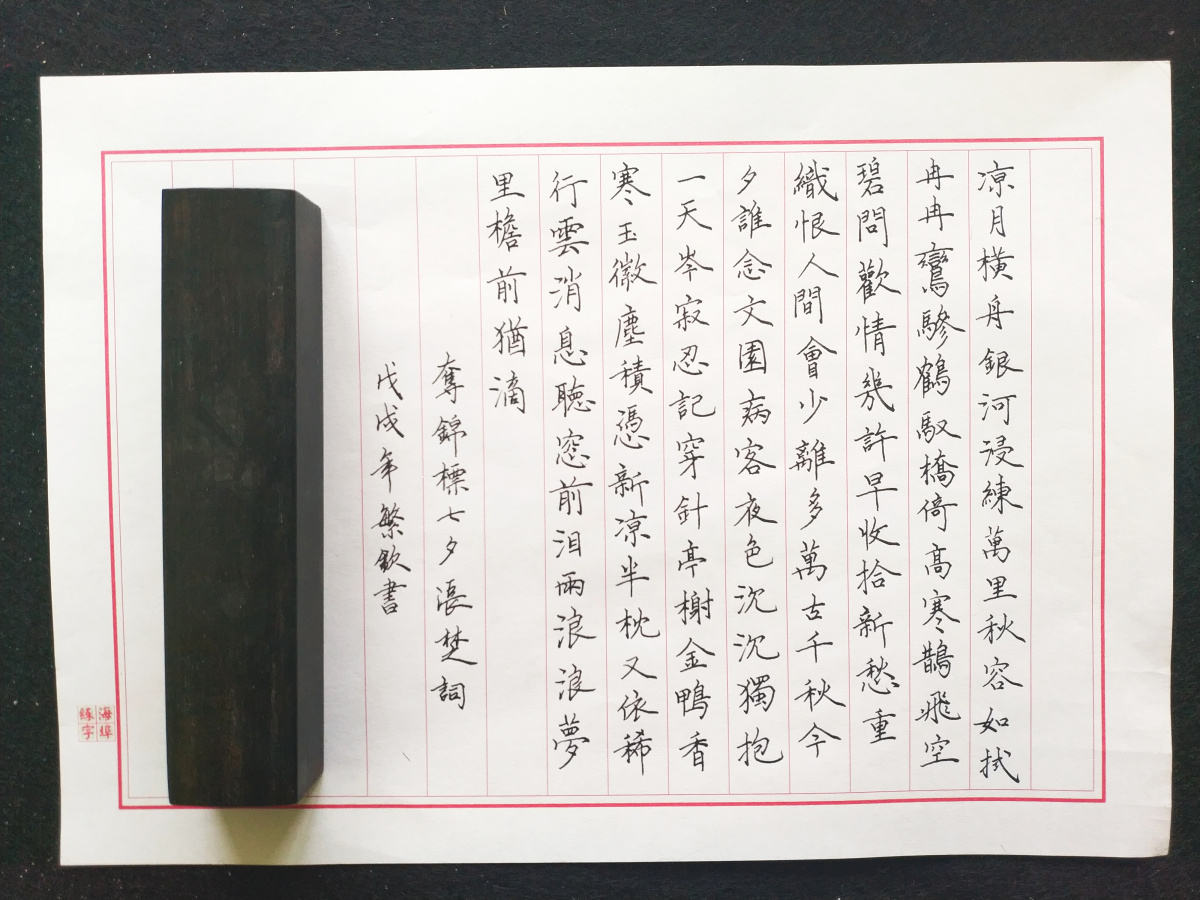 凉月橫舟銀河浸練萬里秋容如拭
冉冉鸞驂鶴馭橋倚高寒鵲飛空
碧問歡情幾許早收拾新愁重
織恨人間會少離多萬古千秋今
夕誰念文園病客夜色沈沈獨抱
一天岑寂忍記穿針亭榭金鴨香
寒玉徽塵積憑新凉半枕又依稀
行雲消息聽窓前泪雨浪浪夢
里檐前猶滴
奪錦標七夕張埜詞
戊戌年繁欽書
海埠
練字